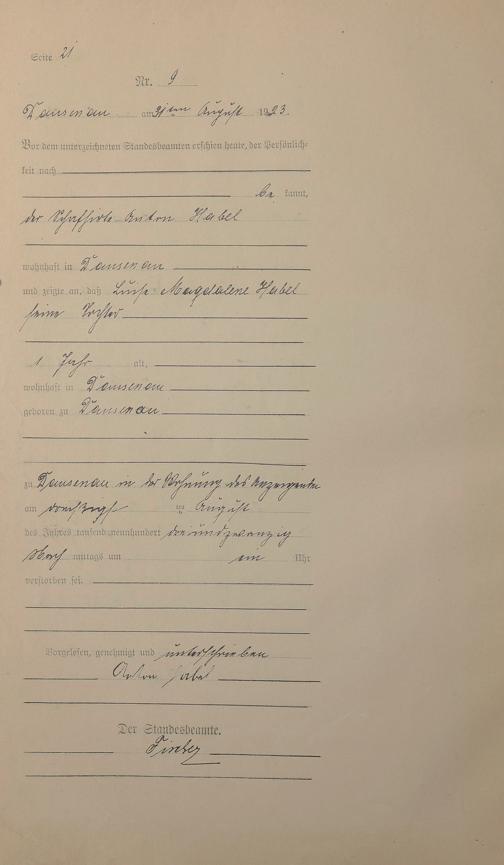 Seite 21
Nr. 9
Dausenau am 31ten August 1923.
Vor dem unterzeichneten Standesbeamten erschien heute, der Persönlich-
keit nach
be kannt,
der Schafhirte Anton Habel
wohnhaft in Dausenau
und zeigte an, daß Luise Magdalene Habel
seine Tochter
1 Jahr alt,
wohnhaft in Dausenau
geboren zu Dausenau
zu Dausenau in der Wohnung des Anzeigenden
am dreißigst ten August
des Jahres tausend neunhundert dreiundzwanzig
Nach mittags um ein Uhr
verstorben sei.
Vorgelesen, genehmigt und unterschrieben
Anton Habel
Der Standesbeamte.